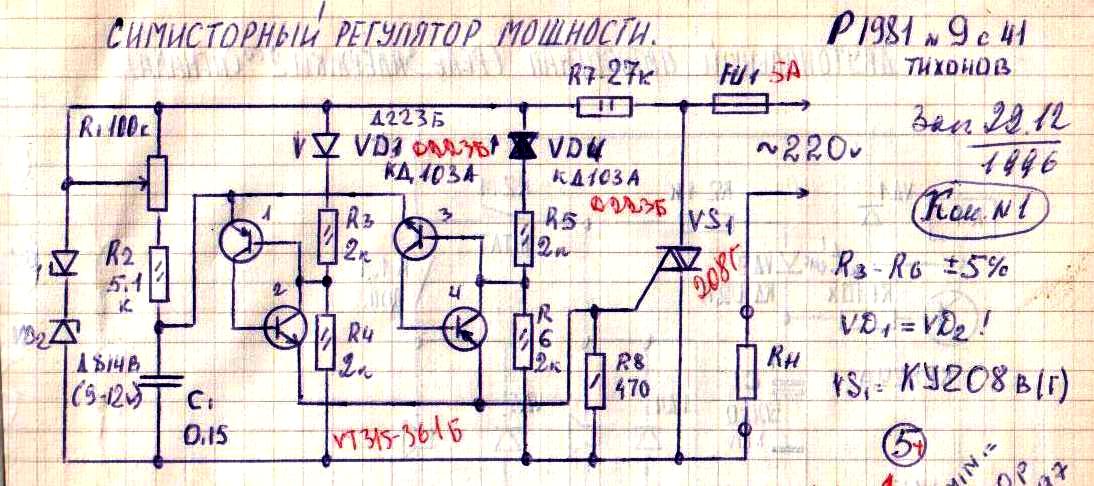 СИМИСТОРНЫЙ РЕГУЛЯТОР МОЩНОСТИ.
Р 1981 №9 с 41
ТИХОНОВ
R7 27к
FU1 5А
Зап. 22.12
1996
R1 100к
Д223Б
VD3 Д223Б
КД103А
VD4
КД103А
Д223Б
~220v
Кон. №1
1
3
R3
2к
R5
2к
VS1
208Г
R3-R6 ±5%
R2
5.1
к
2
4
VD2
R4
2к
R
6
2к
R8
470
Rн
VD1 = VD2 !
VS1 = КУ208 В(Г)
Д814В
(9-12v)
C1
0,15
VT315-361Б
5
MIN.=